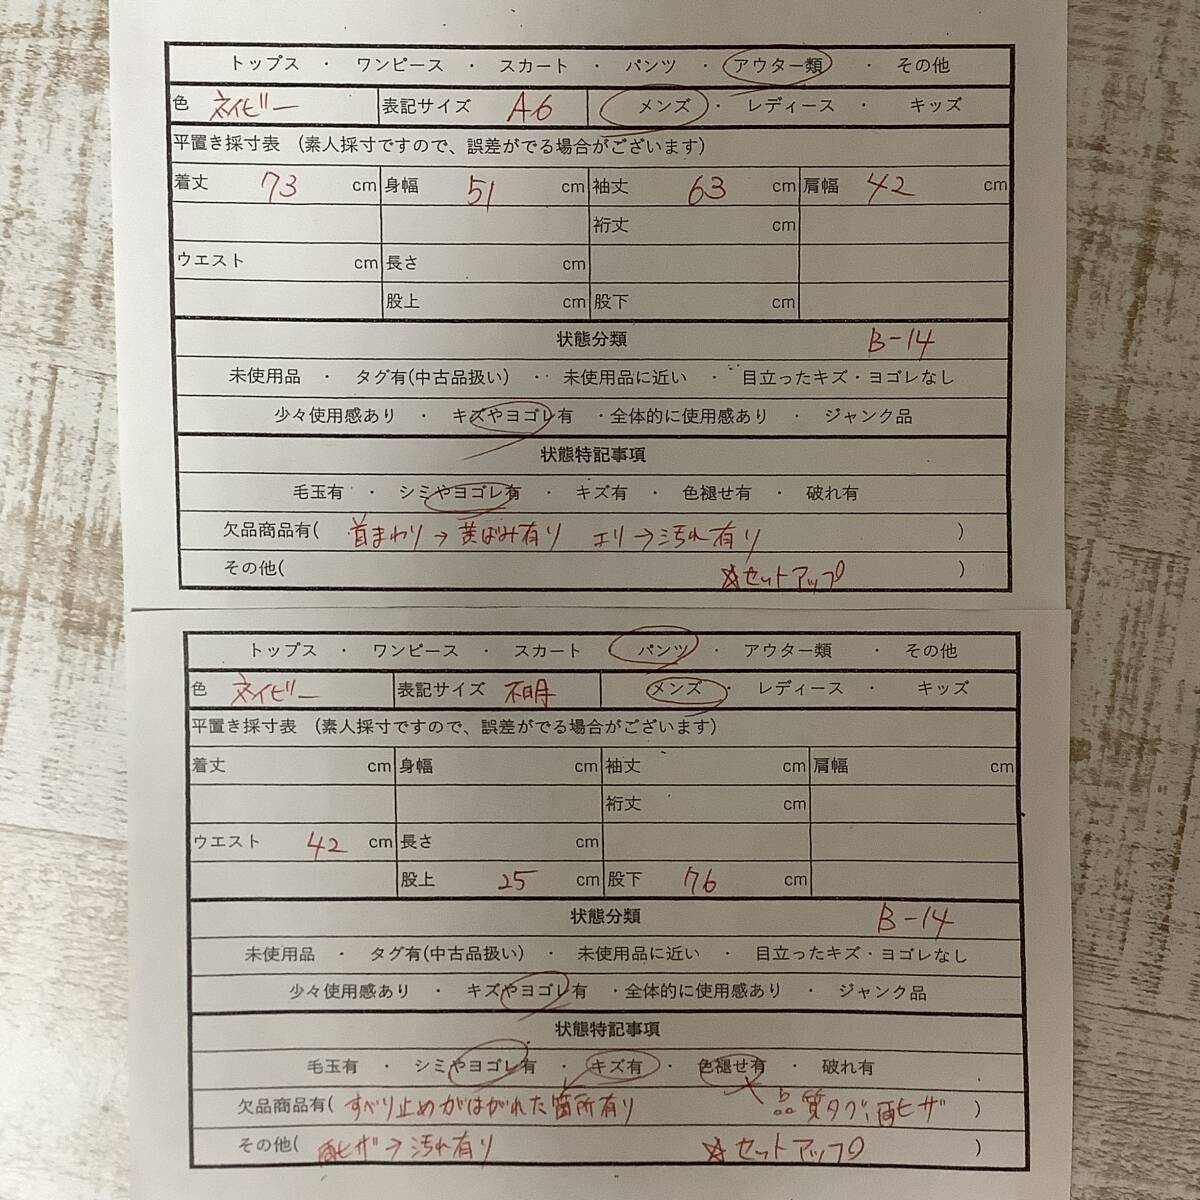 トップス ・ ワンピース ・ スカート ・ パンツ ・ アウター類 ・ その他
色 ネイビー 表記サイズ A6 メンズ ・ レディース ・ キッズ
平置き採寸表 (素人採寸ですので、誤差がでる場合がございます)
着丈 73 cm 身幅 51 cm 袖丈 63 cm 肩幅 42 cm
裄丈 cm
ウエスト cm 長さ cm
股上 cm 股下 cm
状態分類 B-14
未使用品 ・ タグ有(中古品扱い) ・ 未使用品に近い ・ 目立ったキズ・ヨゴレなし
少々使用感あり ・ キズやヨゴレ有 ・全体的に使用感あり ・ ジャンク品
状態特記事項
毛玉有 ・ シミやヨゴレ有 ・ キズ有 ・ 色褪せ有 ・ 破れ有
欠品商品有( 首まわり→黄ばみ有り エリ→汚れ有り )
その他( ☆セットアップ )
トップス ・ ワンピース ・ スカート ・ パンツ ・ アウター類 ・ その他
色 ネイビー 表記サイズ 不明 メンズ ・ レディース ・ キッズ
平置き採寸表 (素人採寸ですので、誤差がでる場合がございます)
着丈 cm 身幅 cm 袖丈 cm 肩幅 cm
裄丈 cm
ウエスト 42 cm 長さ cm
股上 25 cm 股下 76 cm
状態分類 B-14
未使用品 ・ タグ有(中古品扱い) ・ 未使用品に近い ・ 目立ったキズ・ヨゴレなし
少々使用感あり ・ キズやヨゴレ有 ・全体的に使用感あり ・ ジャンク品
状態特記事項
毛玉有 ・ シミやヨゴレ有 ・ キズ有 ・ 色褪せ有 ・ 破れ有
欠品商品有( すべり止めがはがれた箇所有り 品質タグ、両ヒザ )
その他( 両ヒザ→汚れ有り ☆セットアップ )